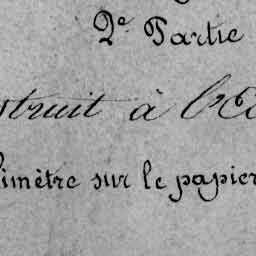 2e Partie
struit à l'E
imètre sur le papier